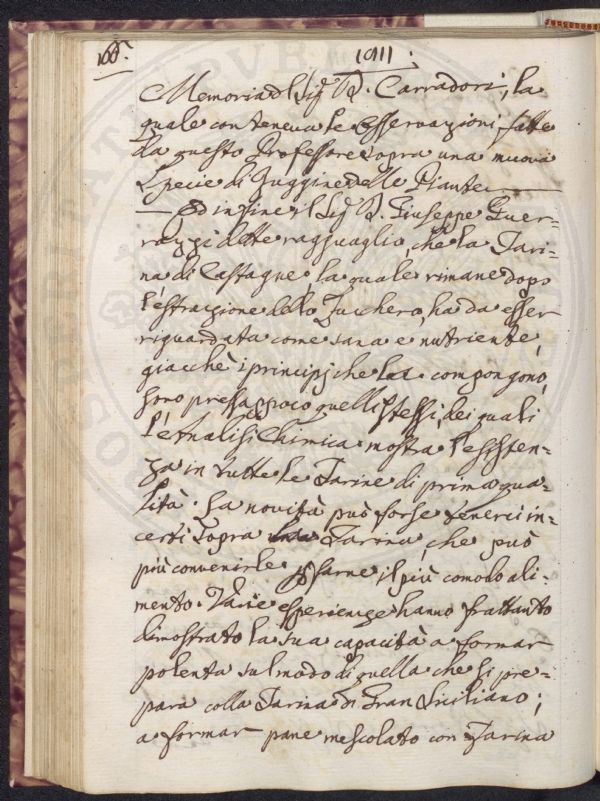 166.
1911.
Memoria del Sig.r D. Carradori, la
quale conteneva le Osservazioni fatte
da questo Professore sopra una nuova
Specie di Ruggine delle Piante
— Ed in fine il Sig.r D. Giuseppe Guer=
razzi dette ragguaglio, che la Fari=
na di Castagne, la quale rimane dopo
l'estrazione dello Zucchero, ha da esser
riguardata come sana e nutriente,
giacchè i principj che la compongono,
sono pressappoco quelli stessi, dei quali
l'Analisi Chimica mostra l'esisten=
za in tutte le Farine di prima qua=
lità. La novità può forse tenerci in=
certi sopra la Farina che può
più convenirle p farne il più comodo ali=
mento. Varie esperienze hanno frattanto
dimostrato la sua capacità a formar
polenta sul modo di quella che si pre=
para colla Farina di Gran Siciliano;
a formar pane mescolato con Farina